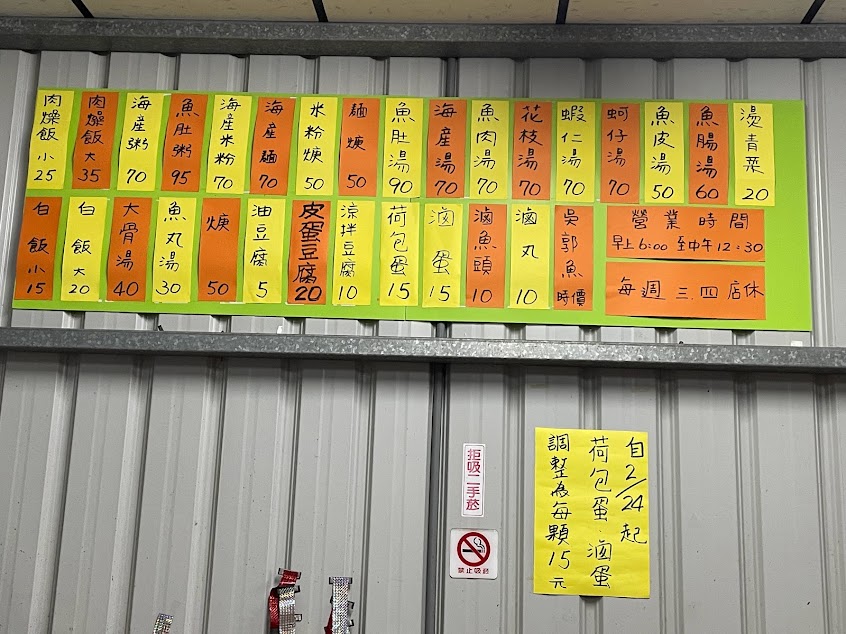 肉燥飯 小 25
肉燥飯 大 35
海產粥 70
魚肚粥 95
海產米粉 70
海產麵 70
米粉焿 50
麵焿 50
魚肚湯 90
海產湯 70
魚肉湯 70
花枝湯 70
蝦仁湯 70
蚵仔湯 70
魚皮湯 50
魚腸湯 60
燙青菜 20
白飯 小 15
白飯 大 20
大骨湯 40
魚丸湯 30
焿 50
油豆腐 5
皮蛋豆腐 20
涼拌豆腐 10
荷包蛋 15
滷蛋 15
滷魚頭 10
滷丸 10
吳郭魚 時價
營業時間
早上6:00至中午12:30
每週三.四店休
自2/24起
荷包蛋.滷蛋
調整為每顆15元
拒吸二手菸
禁止吸菸